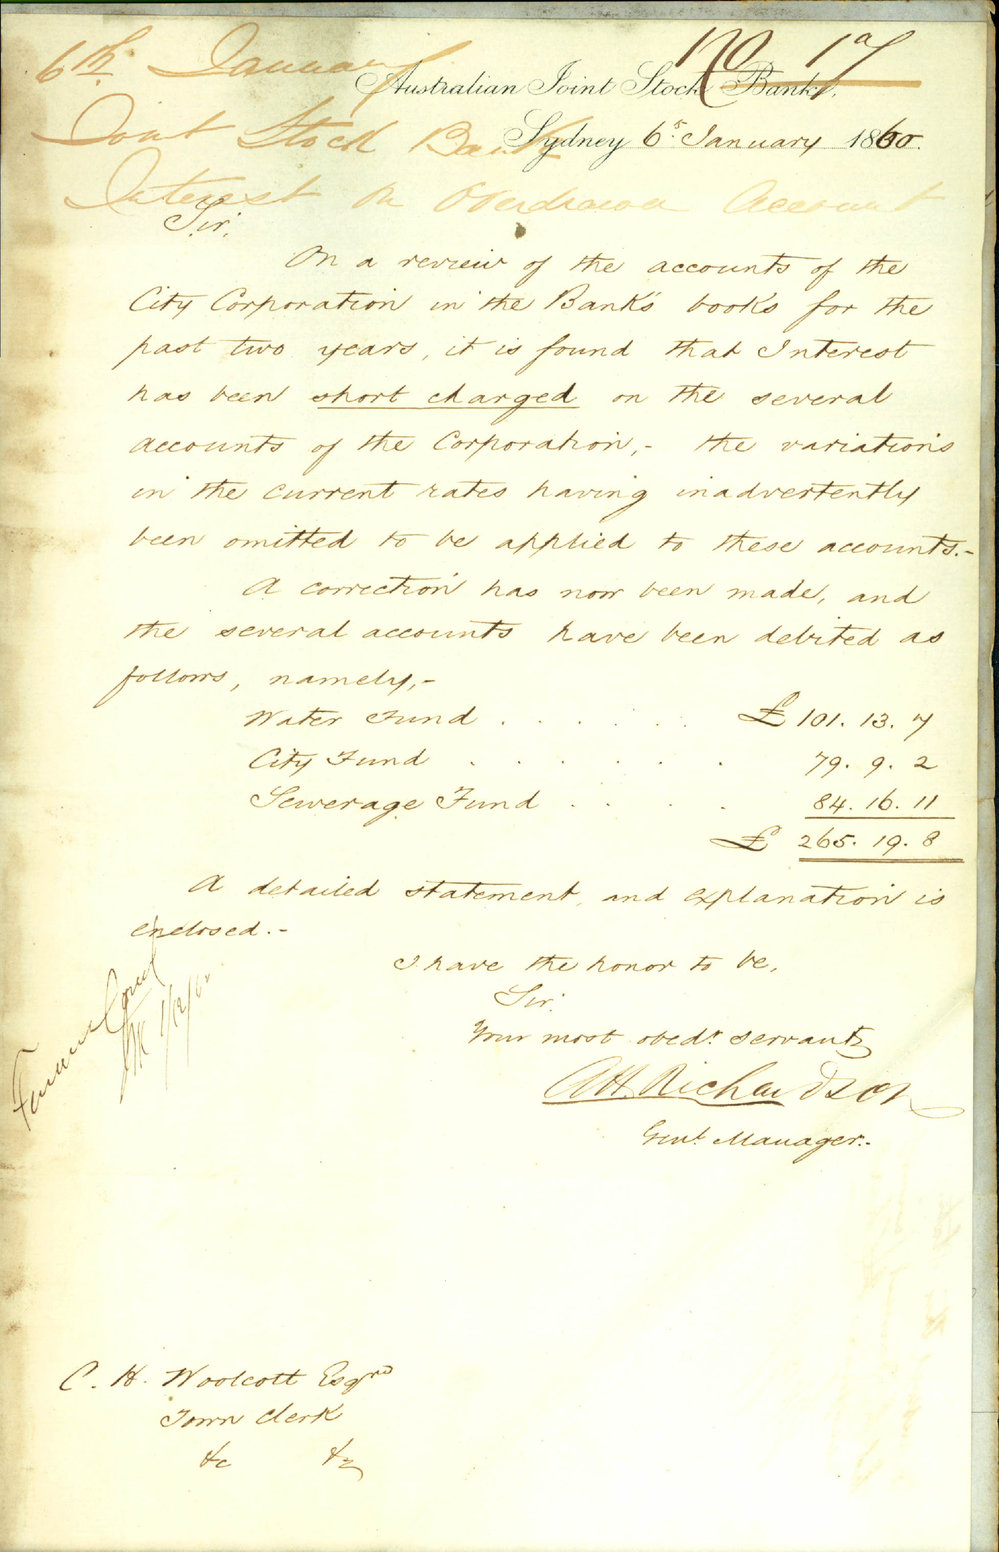 6th January
No 17
Australian Joint Stock Bank,
Joint Stock Bank
Sydney 6th January 1860.
Interest on Overdrawn Account
Sir,
On a review of the accounts of the
City Corporation in the Bank's books for the
past two years, it is found that Interest
has been short charged on the several
accounts of the Corporation,- the variations
in the current rates having inadvertently
been omitted to be applied to these accounts.-
A correction has now been made, and
the several accounts have been debited as
follows, namely,-
Water Fund . . . . . . £101. 13. 7
City Fund . . . . . . . 79. 9. 2
Sewerage Fund . . . . 84. 16. 11
£ 265. 19. 8
A detailed statement, and explanation is
enclosed.-
I have the honor to be,
Sir,
Your most obedt servant
AH. Richardson
Genl Manager.-
C. H. Woolcott Esqre
Town Clerk
&c &c